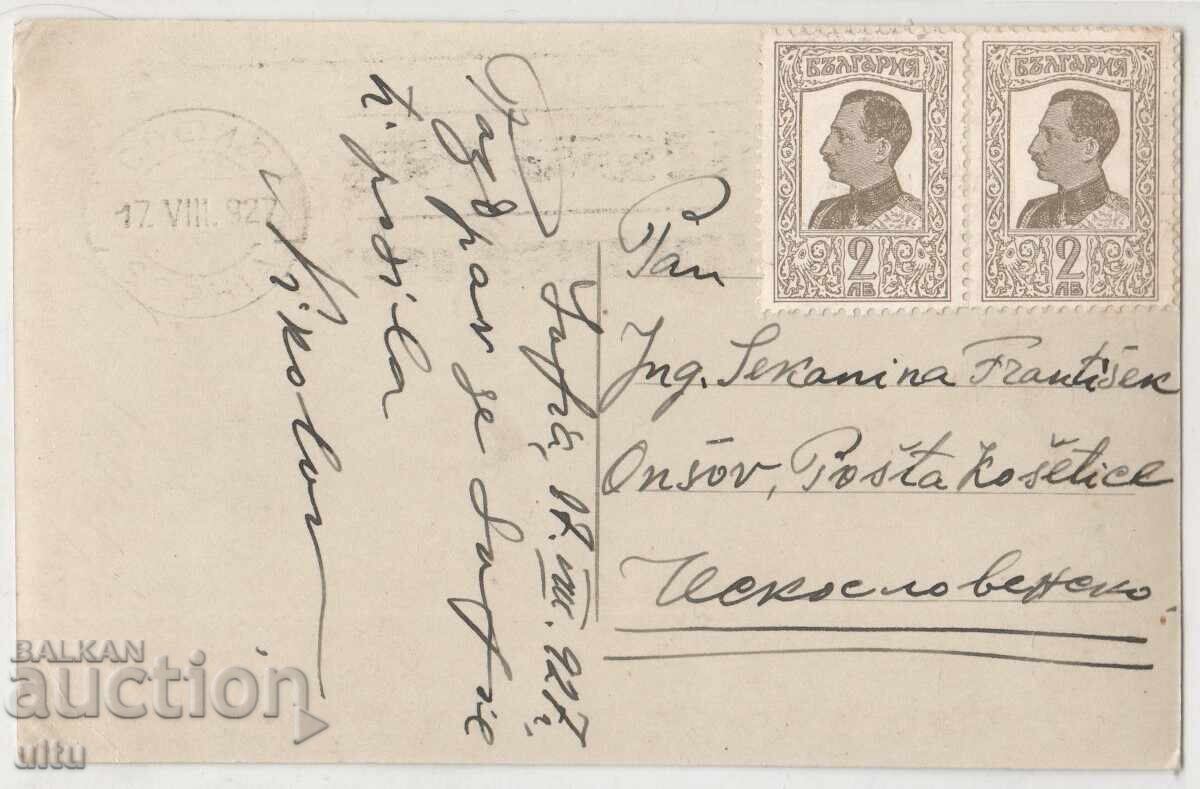 БЪЛГАРИЯ
2
ЛВ
БЪЛГАРИЯ
2
ЛВ
17. VIII. 927
Sofia, 17. VIII. 927.
Pozdrav ze Sofie
posila
Nikolov
Pan
Ing. Sekanina František
Onšov, Pošta Košetice
Ческословенско.
BALKAN
auction
ultu